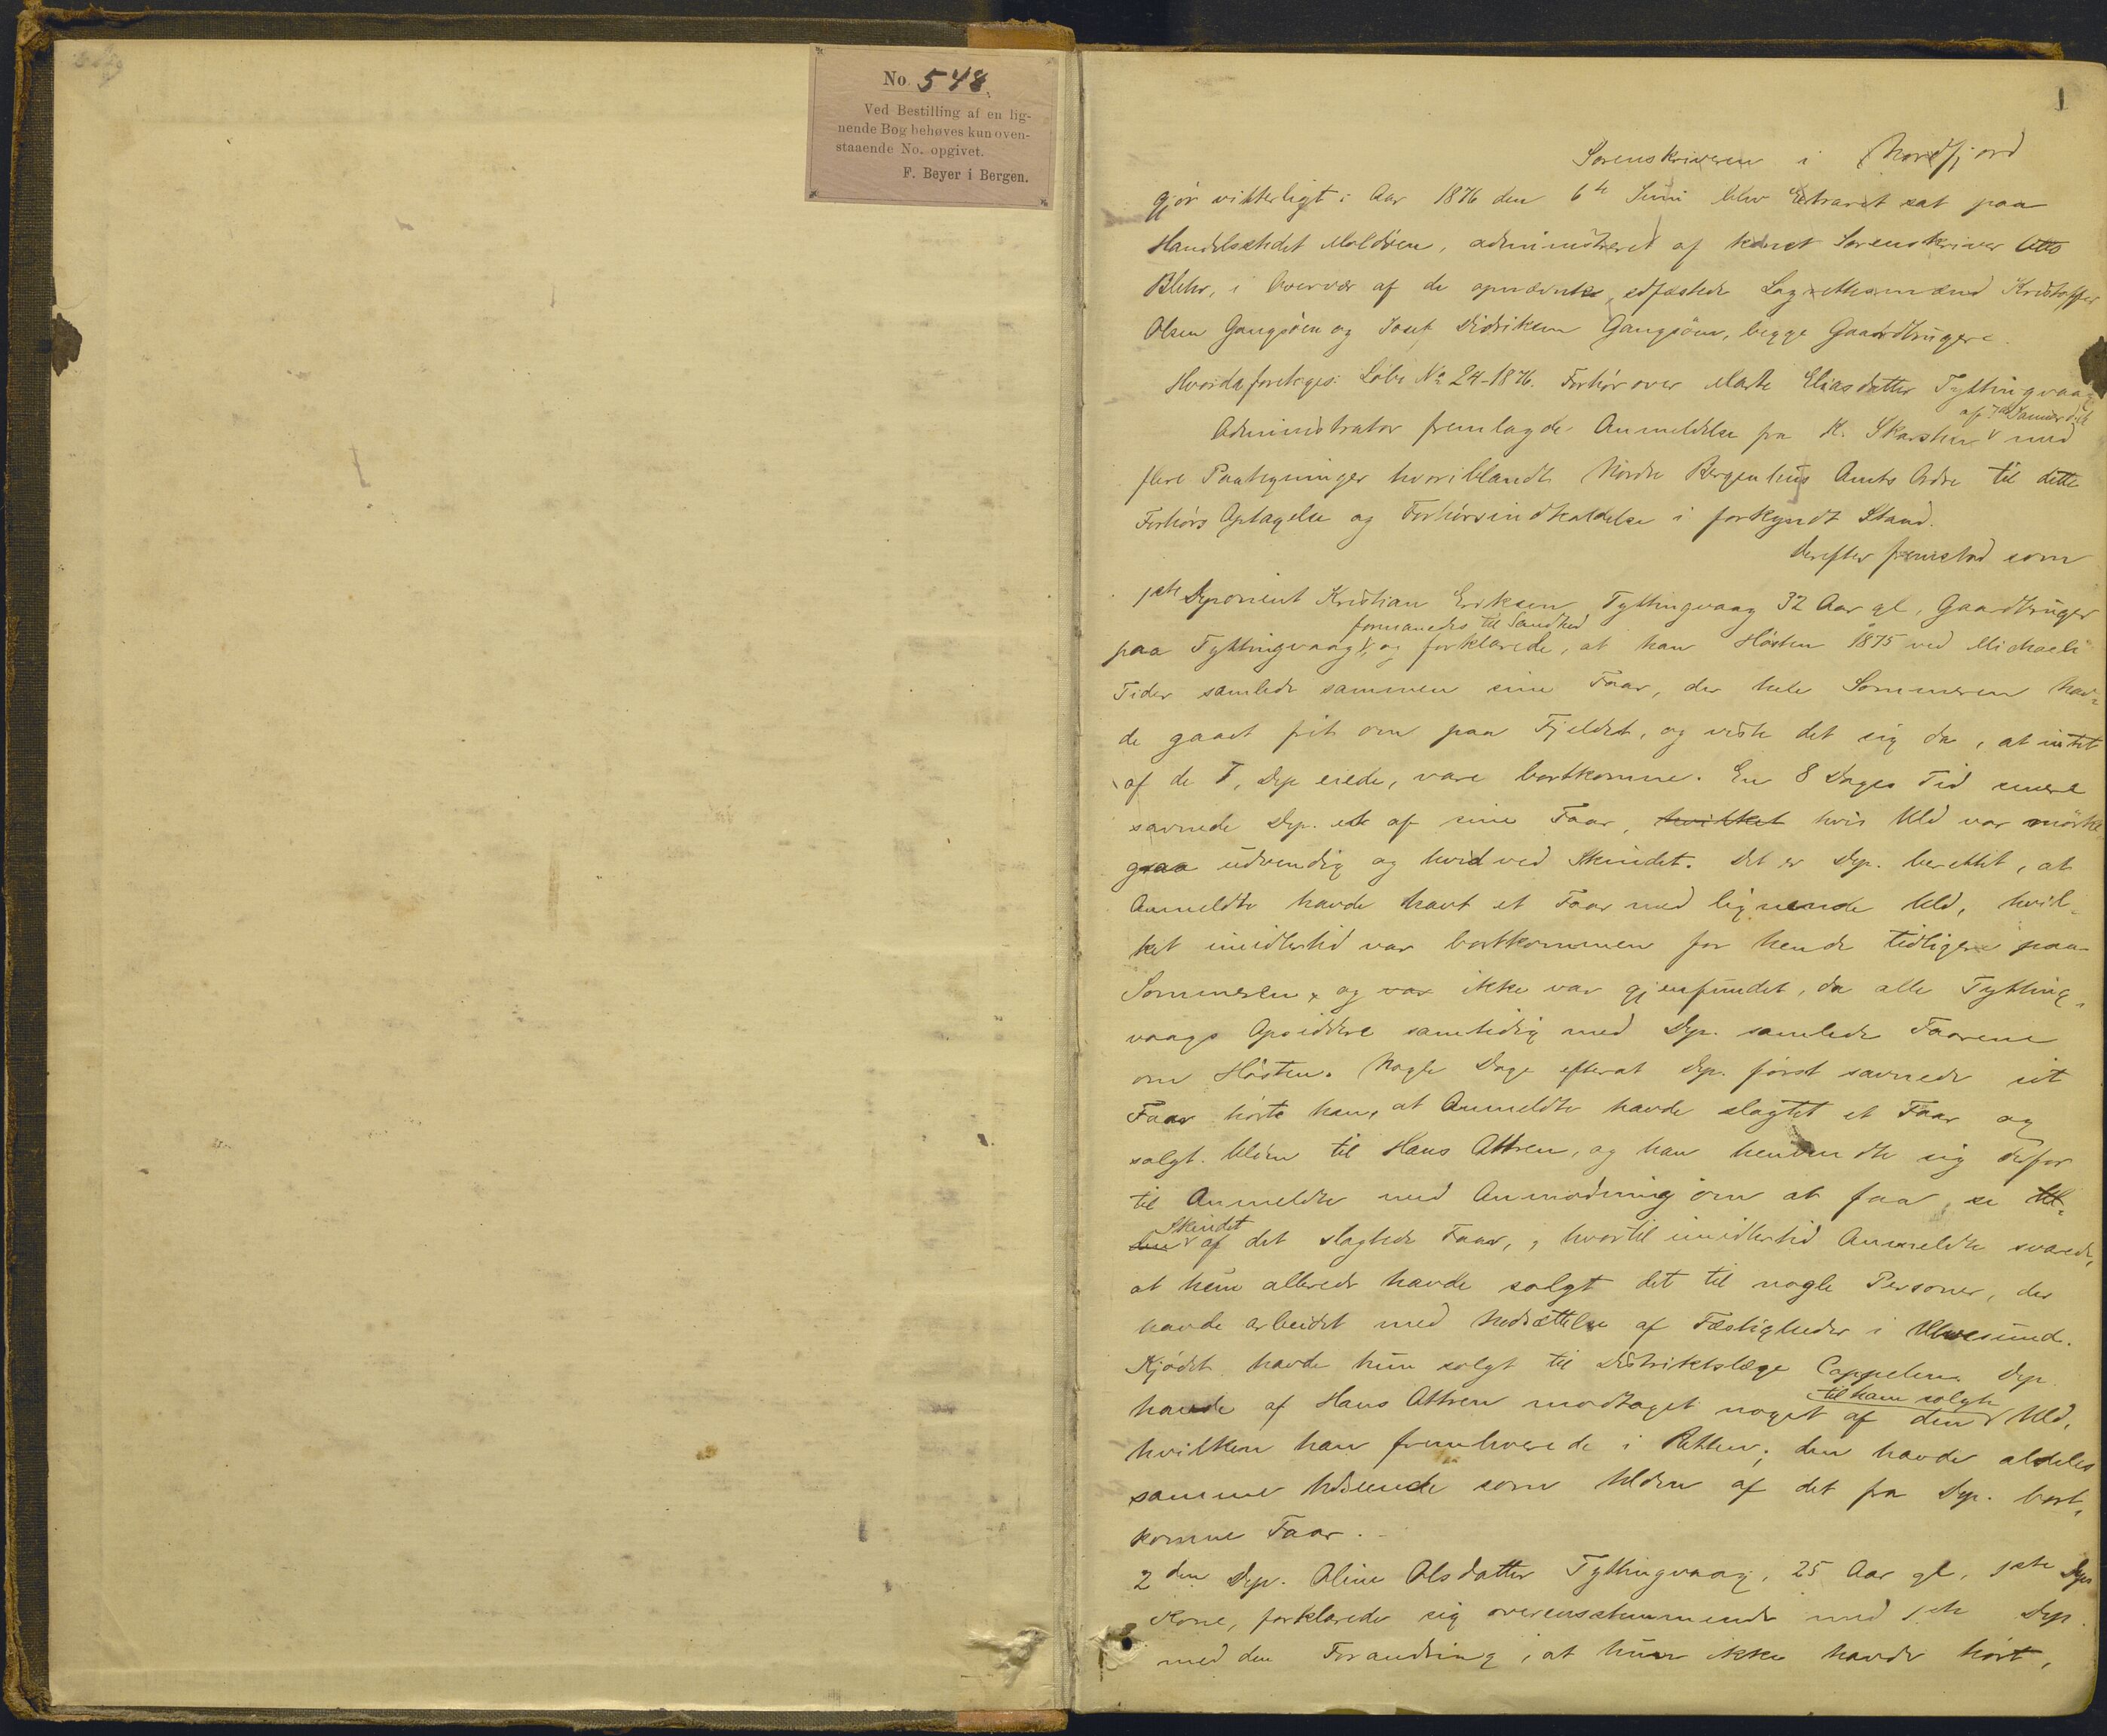 No. 548.
Ved Bestilling af en lig-
nende Bog behøves kun oven-
staaende No. opgivet.
F. Beyer i Bergen.
1
Sorenskriveren i Nordfjord
gjør vitterligt: Aar 1876 den 6te Juni blev Extraret sat paa
Handelsstedet Moldöen, administreret af konst Sorenskriver Otto
Blehr, i Overvær af de opnævnte, edfæstede Lagrettesmænd Kristoffer
Olsen Gangsöen og Josef Didriksen Gangsöen, begge Gaardbrugere.
Hvorda foretoges: Löbe No 24-1876. Forhör over Marte Eliasdatter Tyttingvaag
af 7de Januar d.A.
Administrator fremlagde Anmeldelse fra K. Skarsten med
flere Paategninger hvoriblandt Nordre Bergenhus Amts Ordre til dette
Forhörs Optagelse og Forhörsindkaldelse i forkyndt Stand.
Derefter fremstod som
1ste Deponent Kristian Eriksen Tyttingvaag 32 Aar gl, Gaardbruger
formanedes til Sandhed
paa Tyttingvaag, og forklarede, at han Hösten 1875 ved Michaeli
Tider samlede sammen sine Faar, der hele Sommeren hav-
de gaaet frit om paa Fjeldet, og viste det sig da, at intet
af de 7, Dep eiede, vare bortkomne. En 8 Dages Tid senere
savnede Dep. et af sine Faar, hvilket hvis Uld var mörke
graa udvendig og hvid ved Skindet. Det er Dep. berettet, at
Anmeldte havde havt et Faar med lignende Uld, hvil-
ket imidlertid var bortkommen for hende tidligere paa
Sommeren, og var ikke var gjenfundet, da alle Tytting-
vaags Opsiddere samtidig med Dep. samlede Faarene
om Hösten. Nogle Dage efterat Dep. först savnede sit
Faar hörte han, at Anmeldte havde slagtet et Faar og
solgt Ulden til Hans Attren, og han henvendte sig derfor
til Anmeldte med Anmodning om at faa se Ul-
Skindet
den af det slagtede Faar, hvortil imidlertid Anmeldte svarede,
at hun allerede havde solgt det til nogle Personer, der
havde arbeidet med Nedsættelse af Fæstigheder i Ulvesund.
Kjödet havde hun solgt til Distriktslæge Cappelen. Dep
til ham solgte
havde af Hans Attren modtaget noget af den Uld,
hvilken han fremleverede i Retten; den havde aldeles
samme Udseende som Ulden af det fra Dep. bort-
komne Faar.
2den Dep. Oline Olsdatter Tyttingvaag, 25 Aar gl, 1ste Dep
Kone, forklarede sig overensstemmende med 1ste Dep.
med den Forandring, at hun ikke havde hört,